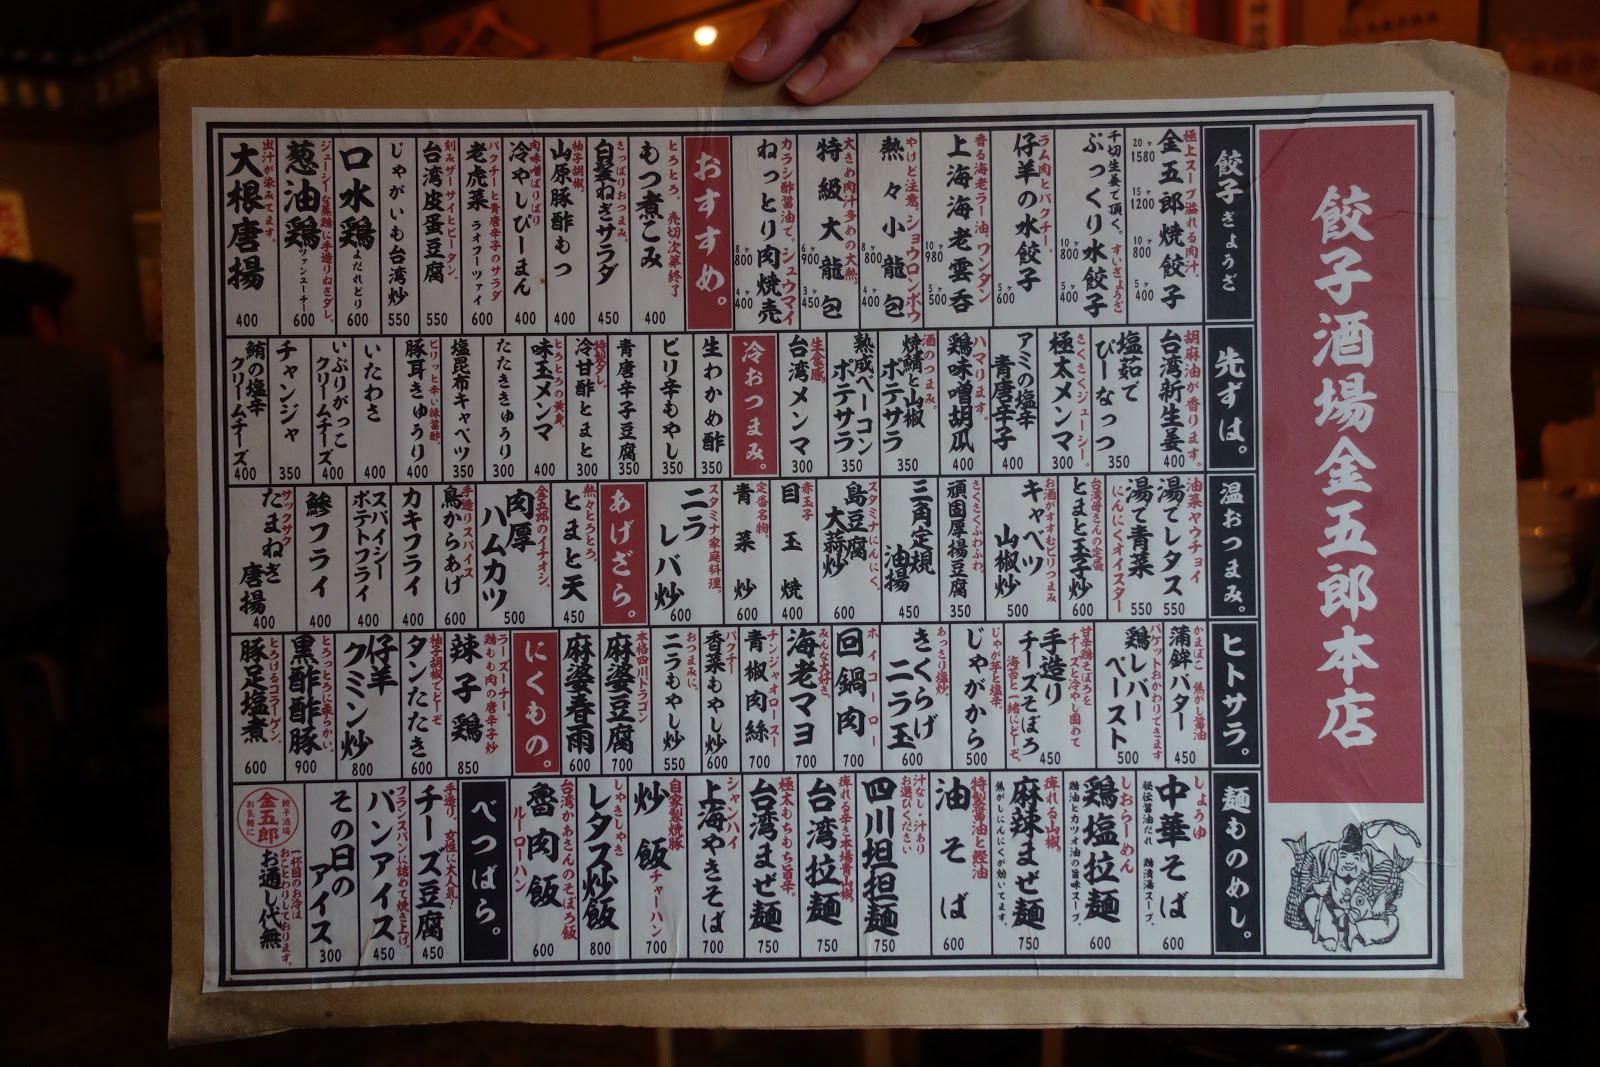 餃子酒場金五郎本店
餃子ぎょうざ
極上スープ溢れる肉汁。
金五郎焼餃子
20ヶ1580
15ヶ1200
10ヶ800
5ヶ400
千切生姜で頂く。すいぎょうざ
ぷっくり水餃子
10ヶ800
5ヶ400
ラム肉とパクチー。
仔羊の水餃子
5ヶ600
香る海老ラー油。ワンタン
上海海老雲呑
10ヶ980
5ヶ500
やけど注意ショウロンポウ
熱々小龍包
8ヶ800
4ヶ400
大きめ肉汁多めの大熱。
特級大龍包
6ヶ900
3ヶ450
カラシ酢醤油で。シュウマイ
ねっとり肉焼売
8ヶ800
4ヶ400
おすすめ。
とろとろ。売切次第終了
もつ煮こみ
400
さっぱりおつまみ。
白髪ねぎサラダ
450
柚子胡椒。
山原豚酢もつ
400
肉味噌ぱりぱり
冷やしぴーまん
400
パクチーと青唐辛子のサラダ
老虎菜ラオフーツァイ
600
刻みザーサイとピータン。
台湾皮蛋豆腐
550
じゃがいも台湾炒
550
口水鶏よだれどり
600
ジューシーな蒸鶏に手造りねぎダレ。
葱油鶏ツァンユーチー
600
出汁が染みてます。
大根唐揚
400
先ずは。
胡麻油が香ります。
台湾新生姜
400
塩茹で
ぴーなっつ
350
さくさくジューシー。
極太メンマ
300
アミの塩辛
青唐辛子
400
ハマります。
鶏味噌胡瓜
400
酒のつまみ。
焼鯖と山椒
ポテサラ
350
熟成ベーコン
ポテサラ
350
生食感。
台湾メンマ
300
冷おつまみ。
生わかめ酢
350
ピリ辛もやし
350
青唐辛子豆腐
350
特製ダレ。
冷甘酢とまと
300
とろとろの黄身。
味玉メンマ
400
たたききゅうり
300
塩昆布キャベツ
350
ピリッと辛い練醤酢。
豚耳きゅうり
400
いたわさ
400
いぶりがっこ
クリームチーズ
400
チャンジャ
350
鮪の塩辛
クリームチーズ
400
温おつまみ。
油菜ヤウチョイ
湯でレタス
550
にんにくオイスター
湯で青菜
550
台湾母さんの定番。
とまと玉子炒
600
お酒がすすむピリつまみ
キャベツ
山椒炒
500
さくさくふわふわ。
頑固厚揚豆腐
350
三角定規
油揚
450
スタミナにんにく。
島豆腐
大蒜炒
600
赤玉子
目玉焼
400
定番名物。
青菜炒
600
スタミナ家庭料理。
ニラ
レバ炒
600
あげざら。
熱々とろとろ。
とまと天
450
金五郎のイチオシ。
肉厚
ハムカツ
500
手造りスパイス
鳥からあげ
600
カキフライ
400
スパイシー
ポテトフライ
400
鯵フライ
400
サックサク
たまねぎ
唐揚
400
ヒトサラ。
かまぼこ 焦がし醤油
蒲鉾バター
450
バゲットおかわりできます
鶏レバー
ペースト
500
甘辛鶏そぼろを
チーズと冷やし固めて
手造り
チーズそぼろ
海苔と一緒にどーぞ。
450
じゃが芋と塩辛。
じゃがから
500
あっさり塩炒。
きくらげ
ニラ玉
600
ホイコーロー
回鍋肉
700
みんな大好き。
海老マヨ
700
チンジャオロースー
青椒肉絲
700
パクチー
香菜もやし炒
600
おつまみに。
ニラもやし炒
550
本格四川ドラゴン
麻婆豆腐
700
麻婆春雨
600
にくもの。
ラーズーチー。
鶏もも肉の唐辛子炒
辣子鶏
850
柚子胡椒でどーぞ
タンたたき
600
仔羊
クミン炒
800
とろっとろに柔らかい。
黒酢酢豚
900
とろけるコラーゲン。
豚足塩煮
600
麺ものめし。
しょうゆ
中華そば
秘伝醤油だれ 鶏清湯スープ。
600
しおらーめん
鶏塩拉麺
鶏油とカツオ油の旨味スープ。
600
痺れる山椒。
麻辣まぜ麺
焦がしにんにくが効いてます。
750
特製醤油と鰹油
油そば
600
汁なし・汁あり
お選びください
四川坦担麺
750
痺れる辛さ本場青山椒。
台湾拉麺
750
極太もちもち旨辛。
台湾まぜ麺
750
シャンハイ
上海やきそば
700
自家製焼豚
炒飯チャーハン
700
しゃきしゃき
レタス炒飯
800
台湾かあさんのそぼろ飯
魯肉飯
ルーローハン
600
べつばら。
手造り。女性に大人気!
チーズ豆腐
450
フランスパンに詰めて焼き上げ。
パンアイス
450
その日の
アイス
300
一杯目のお冷は
おことわりしております。
お通し代無
餃子酒場
金五郎
お気軽に